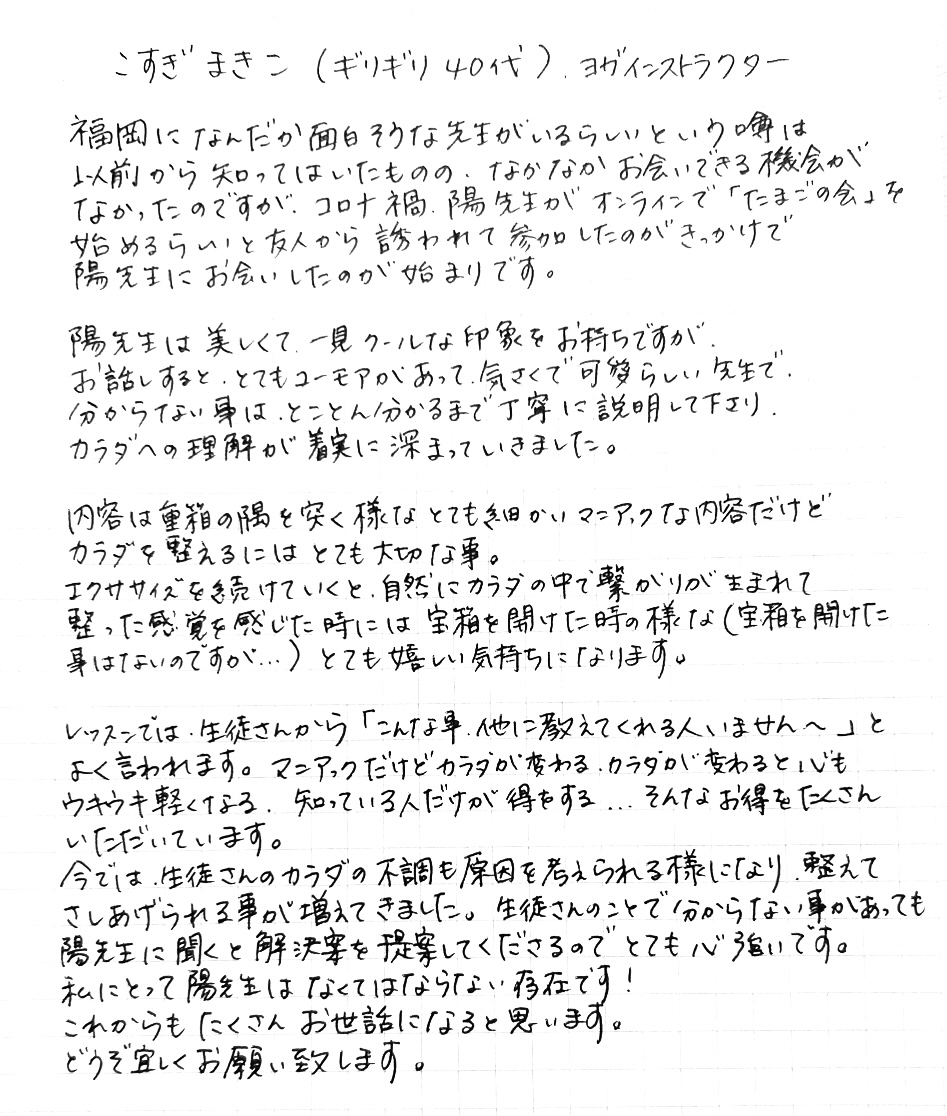 こすぎ まきこ (ギリギリ 40代)、ヨガインストラクター
福岡に なんだか面白そうな先生がいるらしいという噂は
以前から 知ってはいたものの、なかなか お会いできる機会が
なかったのですが、コロナ禍、陽先生が オンラインで「たまごの会」を
始めるらしいと友人から 誘われて参加したのがきっかけで
陽先生に お会いしたのが始まりです。
陽先生は 美しくて、一見クールな印象を お持ちですが、
お話しすると、とてもユーモアがあって、気さくで可愛らしい先生で、
分からない事は、とことん分かるまで丁寧に説明して下さり、
カラダへの理解が着実に深まっていきました。
内容は重箱の隅を突く様な とても細かいマニアックな内容だけど
カラダを整えるには とても大切な事。
エクササイズを続けていくと、自然にカラダの中で繋がりが生まれて
整った感覚を感じた時には 宝箱を開けた時の様な(宝箱を開けた
事はないのですが…) とても嬉しい気持ちになります。
レッスンでは、生徒さんから「こんな事、他に教えてくれる人いません〜」と
よく言われます。マニアックだけどカラダが変わる、カラダが変わると心も
ウキウキ軽くなる、 知っている人だけが得をする…そんなお得をたくさん
いただいています。
今では、生徒さんのカラダの不調も原因を考えられる様になり、整えて
さしあげられる事が増えてきました。生徒さんのことで分からない事があっても
陽先生に聞くと解決案を提案してくださるので とても心強いです。
私にとって陽先生は なくてはならない存在です!
これからも たくさん お世話になると思います。
どうぞ宜しくお願い致します。